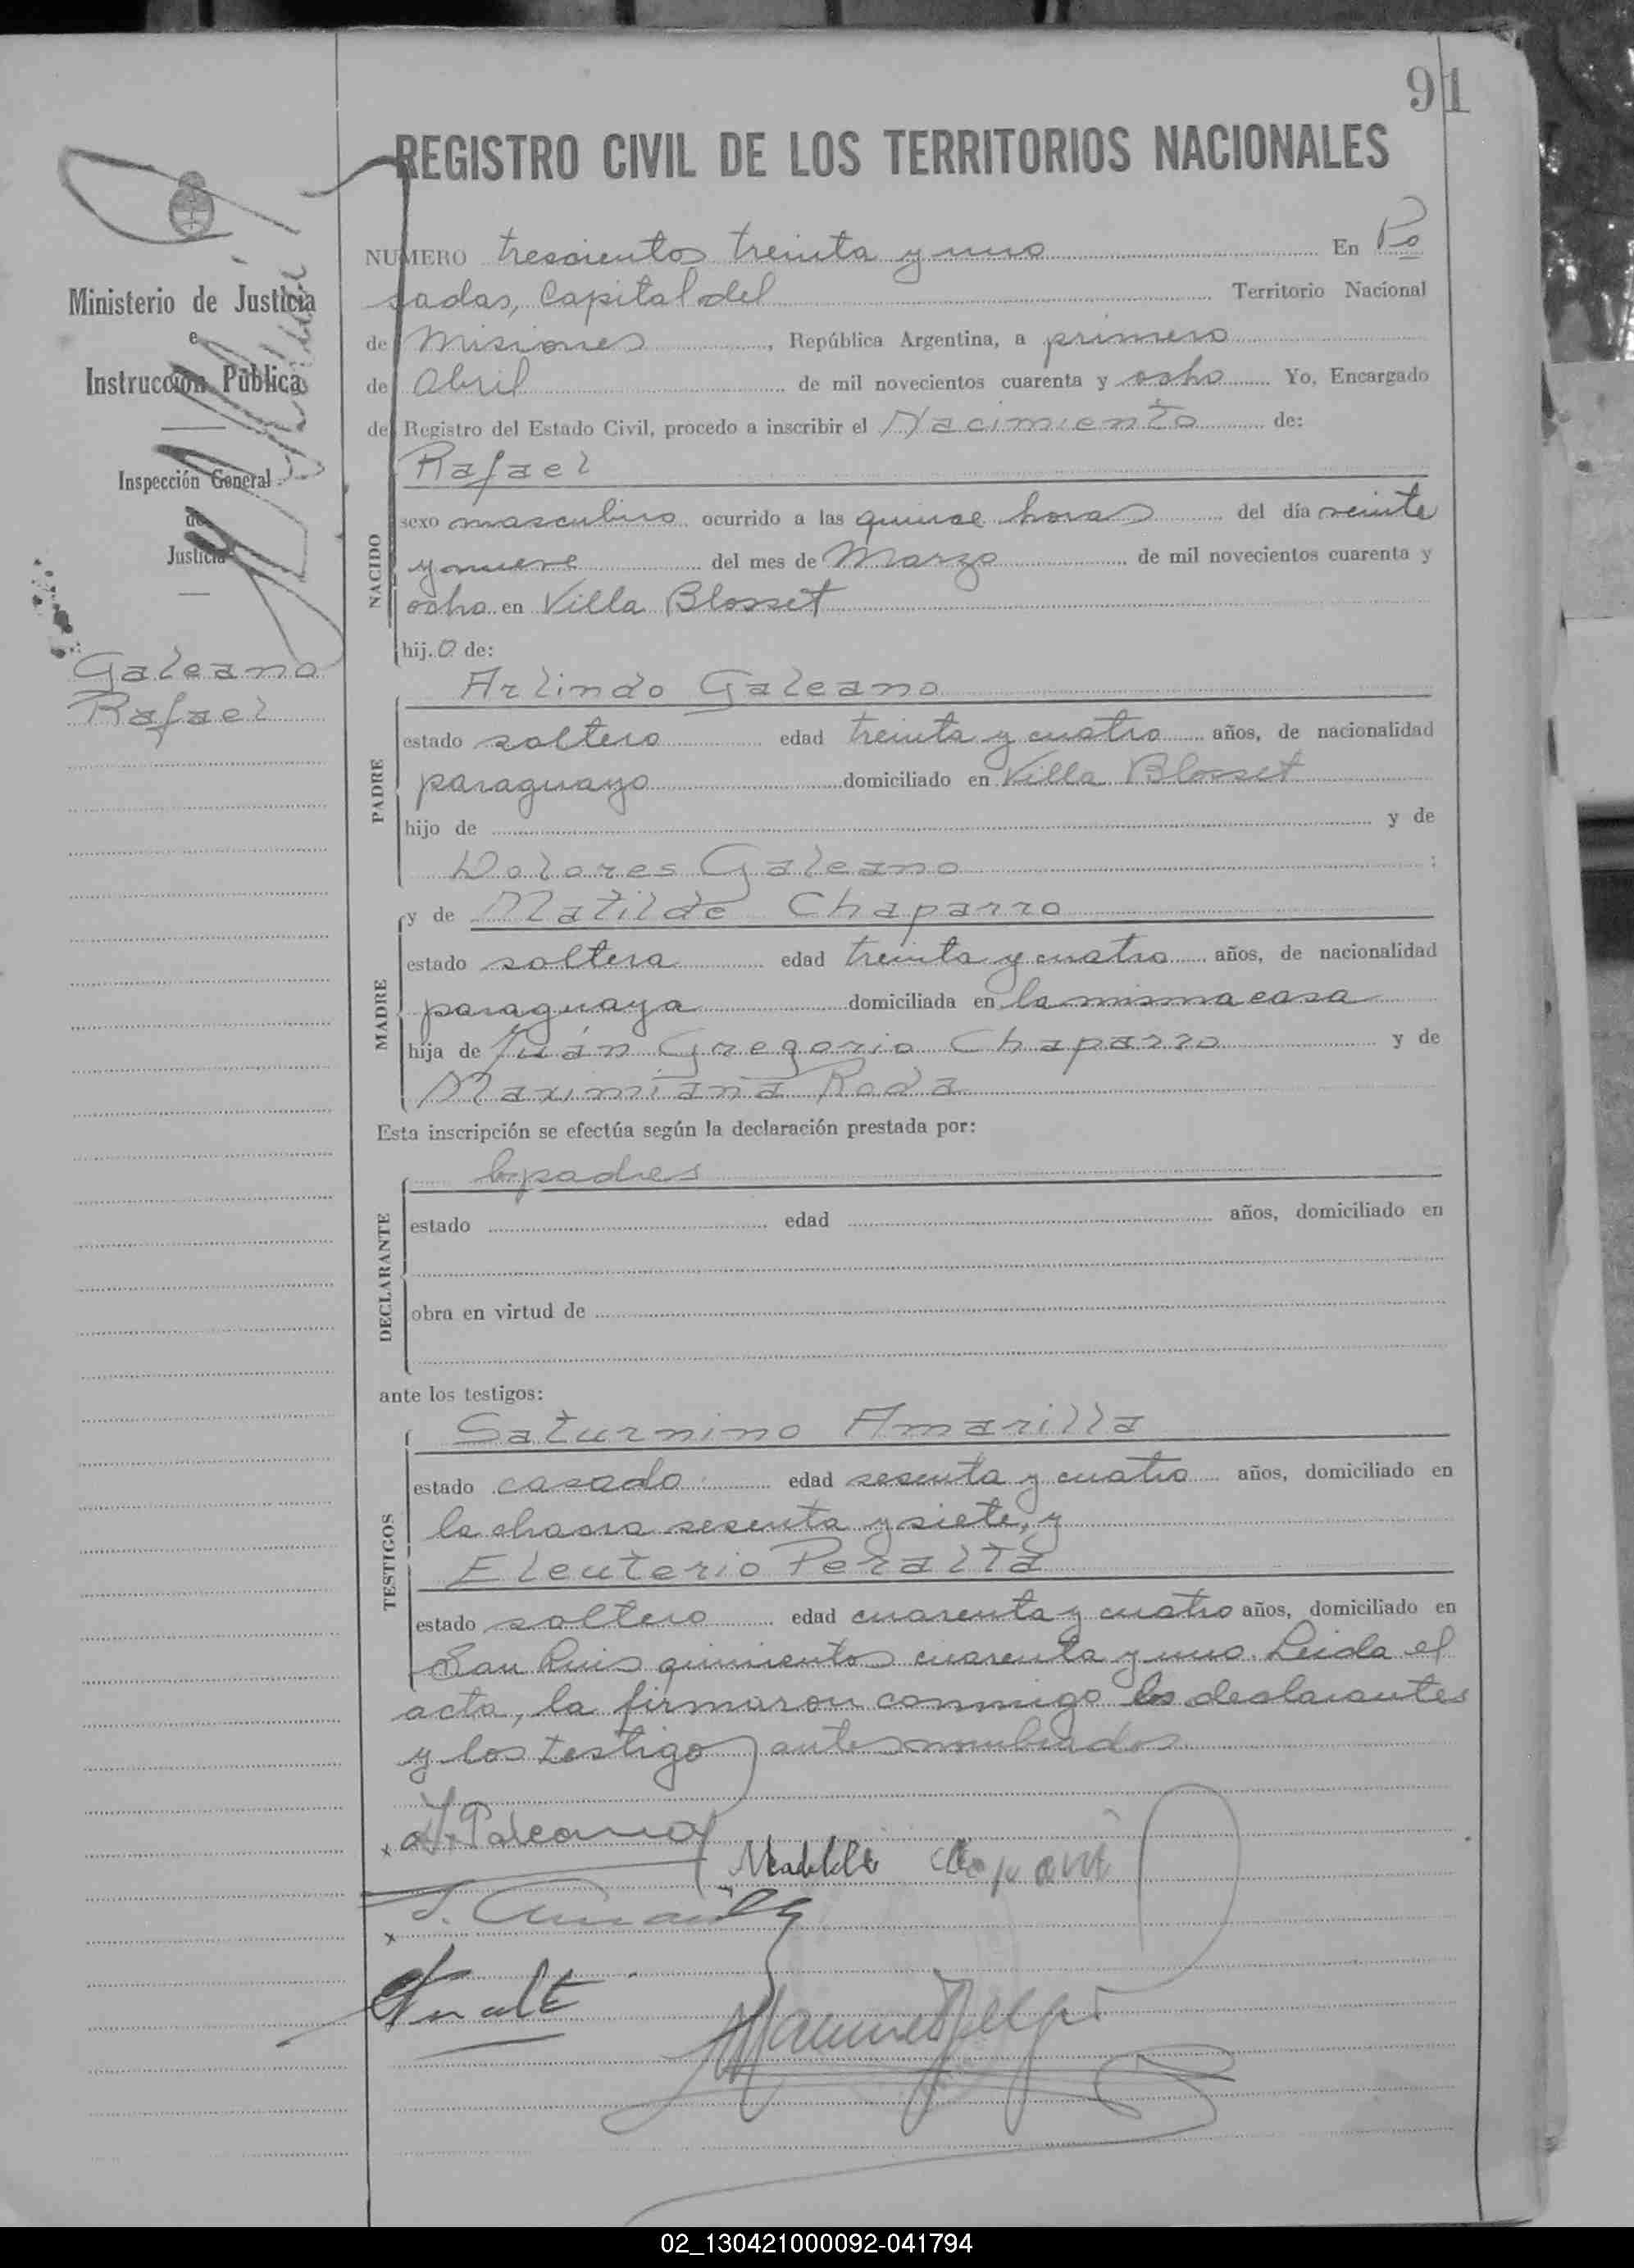 91
REGISTRO CIVIL DE LOS TERRITORIOS NACIONALES
Ministerio de Justicia
e
Instrucción Pública
Inspección General
de
Justicia
Galeano
Rafael
NUMERO trescientos treinta y uno En Po
sadas, Capital del Territorio Nacional
de Misiones, República Argentina, a primero
de Abril de mil novecientos cuarenta y ocho Yo, Encargado
del Registro del Estado Civil, procedo a inscribir el Nacimiento de:
Rafael
NACIDO
sexo masculino ocurrido a las quince horas del día veinte
y nueve del mes de Marzo de mil novecientos cuarenta y
ocho en Villa Blosset
hij.o de:
Arlindo Galeano
PADRE
estado soltero edad treinta y cuatro años, de nacionalidad
paraguayo domiciliado en Villa Blosset
hijo de y de
Dolores Galeano :
y de Matilde Chaparro
MADRE
estado soltera edad treinta y cuatro años, de nacionalidad
paraguaya domiciliada en la misma casa
hija de Juán Gregorio Chaparro y de
Maximiana Roda
Esta inscripción se efectúa según la declaración prestada por:
los padres
DECLARANTE
estado edad años, domiciliado en
obra en virtud de
ante los testigos:
Saturnino Amarilla
TESTIGOS
estado casado edad sesenta y cuatro años, domiciliado en
la chacra sesenta y siete, y
Eleuterio Peralta
estado soltero edad cuarenta y cuatro años, domiciliado en
San Luis quinientos cuarenta y uno. Leida el
acta, la firmaron conmigo los declarantes
y los testigos antes nombrados
A. Galeano
S. Amarilla
02_130421000092-041794